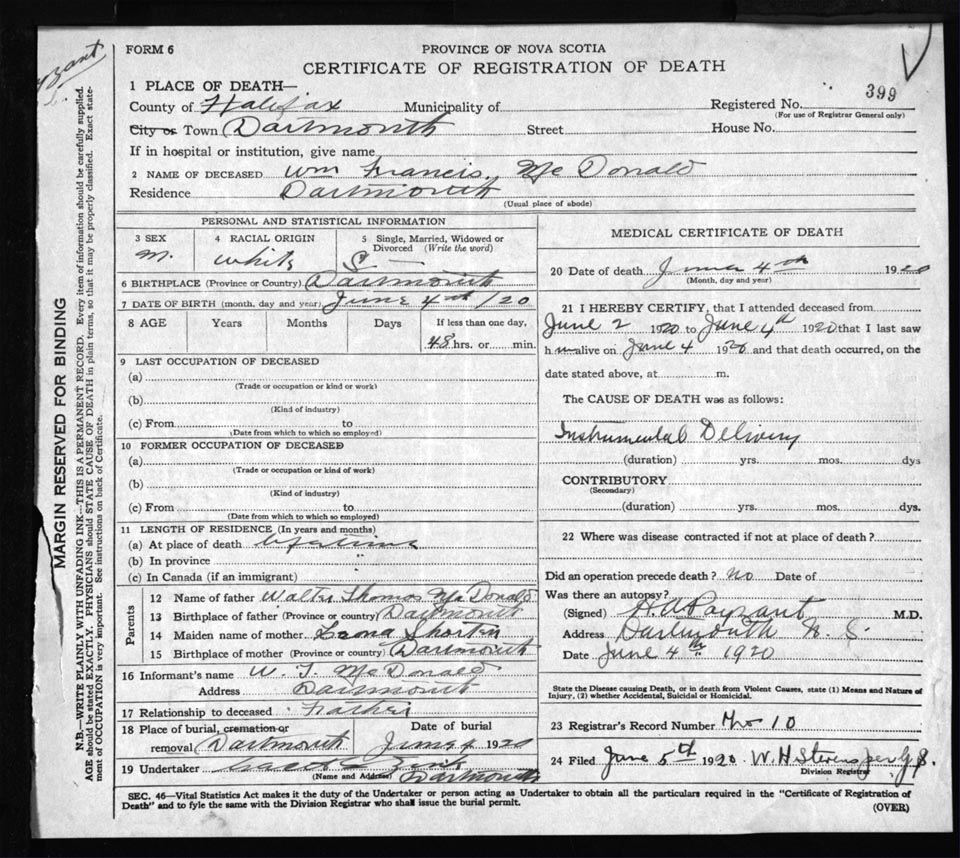 FORM 6
PROVINCE OF NOVA SCOTIA
CERTIFICATE OF REGISTRATION OF DEATH
399
1 PLACE OF DEATH—
County of Halifax Municipality of Registered No.
(For use of Registrar General only)
City or Town Dartmouth Street House No.
If in hospital or institution, give name
2 NAME OF DECEASED Wm Francis, McDonald
Residence Dartmouth
(Usual place of abode)
PERSONAL AND STATISTICAL INFORMATION
3 SEX
m.
4 RACIAL ORIGIN
white
5 Single, Married, Widowed or Divorced (Write the word)
S —
6 BIRTHPLACE (Province or Country) Dartmouth
7 DATE OF BIRTH (month, day and year) June 4th/20
8 AGE Years Months Days If less than one day,
48 hrs. or min.
9 LAST OCCUPATION OF DECEASED
(a)
(Trade or occupation or kind or work)
(b)
(Kind of industry)
(c) From to
(Date from which to which so employed)
10 FORMER OCCUPATION OF DECEASED
(a)
(Trade or occupation or kind of work)
(b)
(Kind of industry)
(c) From to
(Date from which to which so employed)
11 LENGTH OF RESIDENCE (In years and months)
(a) At place of death lifetime
(b) In province "
(c) In Canada (if an immigrant)
Parents
12 Name of father Walter Thomas McDonald
13 Birthplace of father (Province or Country) Dartmouth
14 Maiden name of mother
15 Birthplace of mother (Province or country) Dartmouth
16 Informant's name W. T. McDonald
Address Dartmouth
17 Relationship to deceased Father
18 Place of burial, cremation or removal Dartmouth
Date of burial
June 4 1920
19 Undertaker Dartmouth
(Name and Address)
MEDICAL CERTIFICATE OF DEATH
20 Date of death June 4th 1920
(Month, day and year)
21 I HEREBY CERTIFY, that I attended deceased from
June 2 1920 to June 4th 1920 that I last saw
h im alive on June 4 1920 and that death occurred, on the
date stated above, at m.
The CAUSE OF DEATH was as follows:
Instrumental Delivery
(duration) yrs. mos. dys
CONTRIBUTORY
(Secondary)
(duration) yrs. mos. dys.
22 Where was disease contracted if not at place of death?
Did an operation precede death? No Date of
Was there an autopsy?
(Signed) H. A. Payzant M.D.
Address Dartmouth N. S.
Date June 4th 1920
State the Disease causing Death, or in death from Violent Causes, state (1) Means and Nature of Injury, (2) whether Accidental, Suicidal or Homicidal.
23 Registrar's Record Number No 10
24 Filed June 5th 1920 W. H. Stevens per G. S.
Division Registrar
SEC. 46—Vital Statistics Act makes it the duty of the Undertaker or person acting as Undertaker to obtain all the particulars required in the "Certificate of Registration of
Death" and to fyle the same with the Division Registrar who shall issue the burial permit.
(OVER)
MARGIN RESERVED FOR BINDING
N.B.—WRITE PLAINLY WITH UNFADING INK—THIS IS A PERMANENT RECORD. Every item of information should be carefully supplied.
AGE should be stated EXACTLY. PHYSICIANS should STATE CAUSE OF DEATH in plain terms, so that it may be properly classified. Exact state-
ment of OCCUPATION is very important. See instructions on back of Certificate.